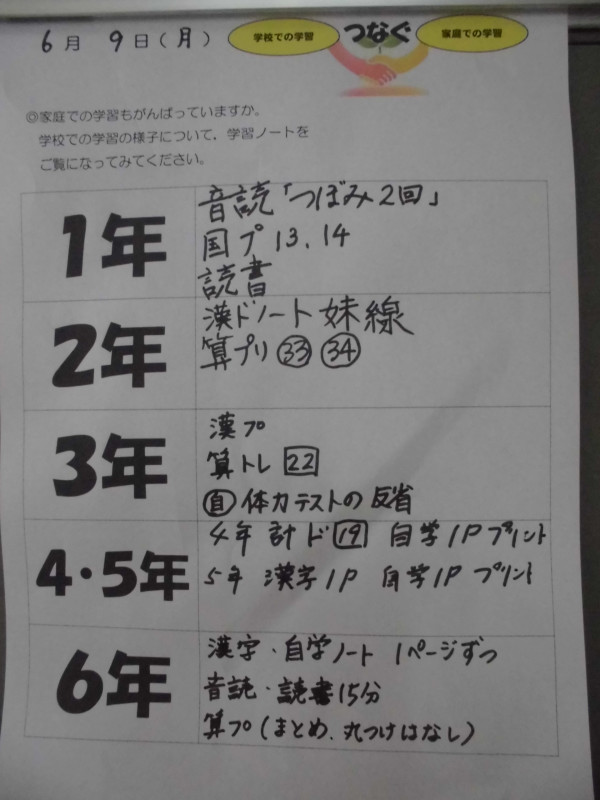 6月 9日(月)
学校での学習
つなぐ
家庭での学習
◎家庭での学習もがんばっていますか。
学校での学習の様子について、学習ノートを
ご覧になってみてください。
1年
音読「つぼみ2回」
国プ 13、14
読書
2年
漢ドノート 妹線
算プリ ㉝ ㉞
3年
漢プ
算トレ 22
自 体力テストの反省
4・5年
4年 計ド 19 自学1P プリント
5年 漢字1P 自学1P プリント
6年
漢字・自学ノート 1ページずつ
音読・読書15分
算プ(まとめ、丸つけはなし)